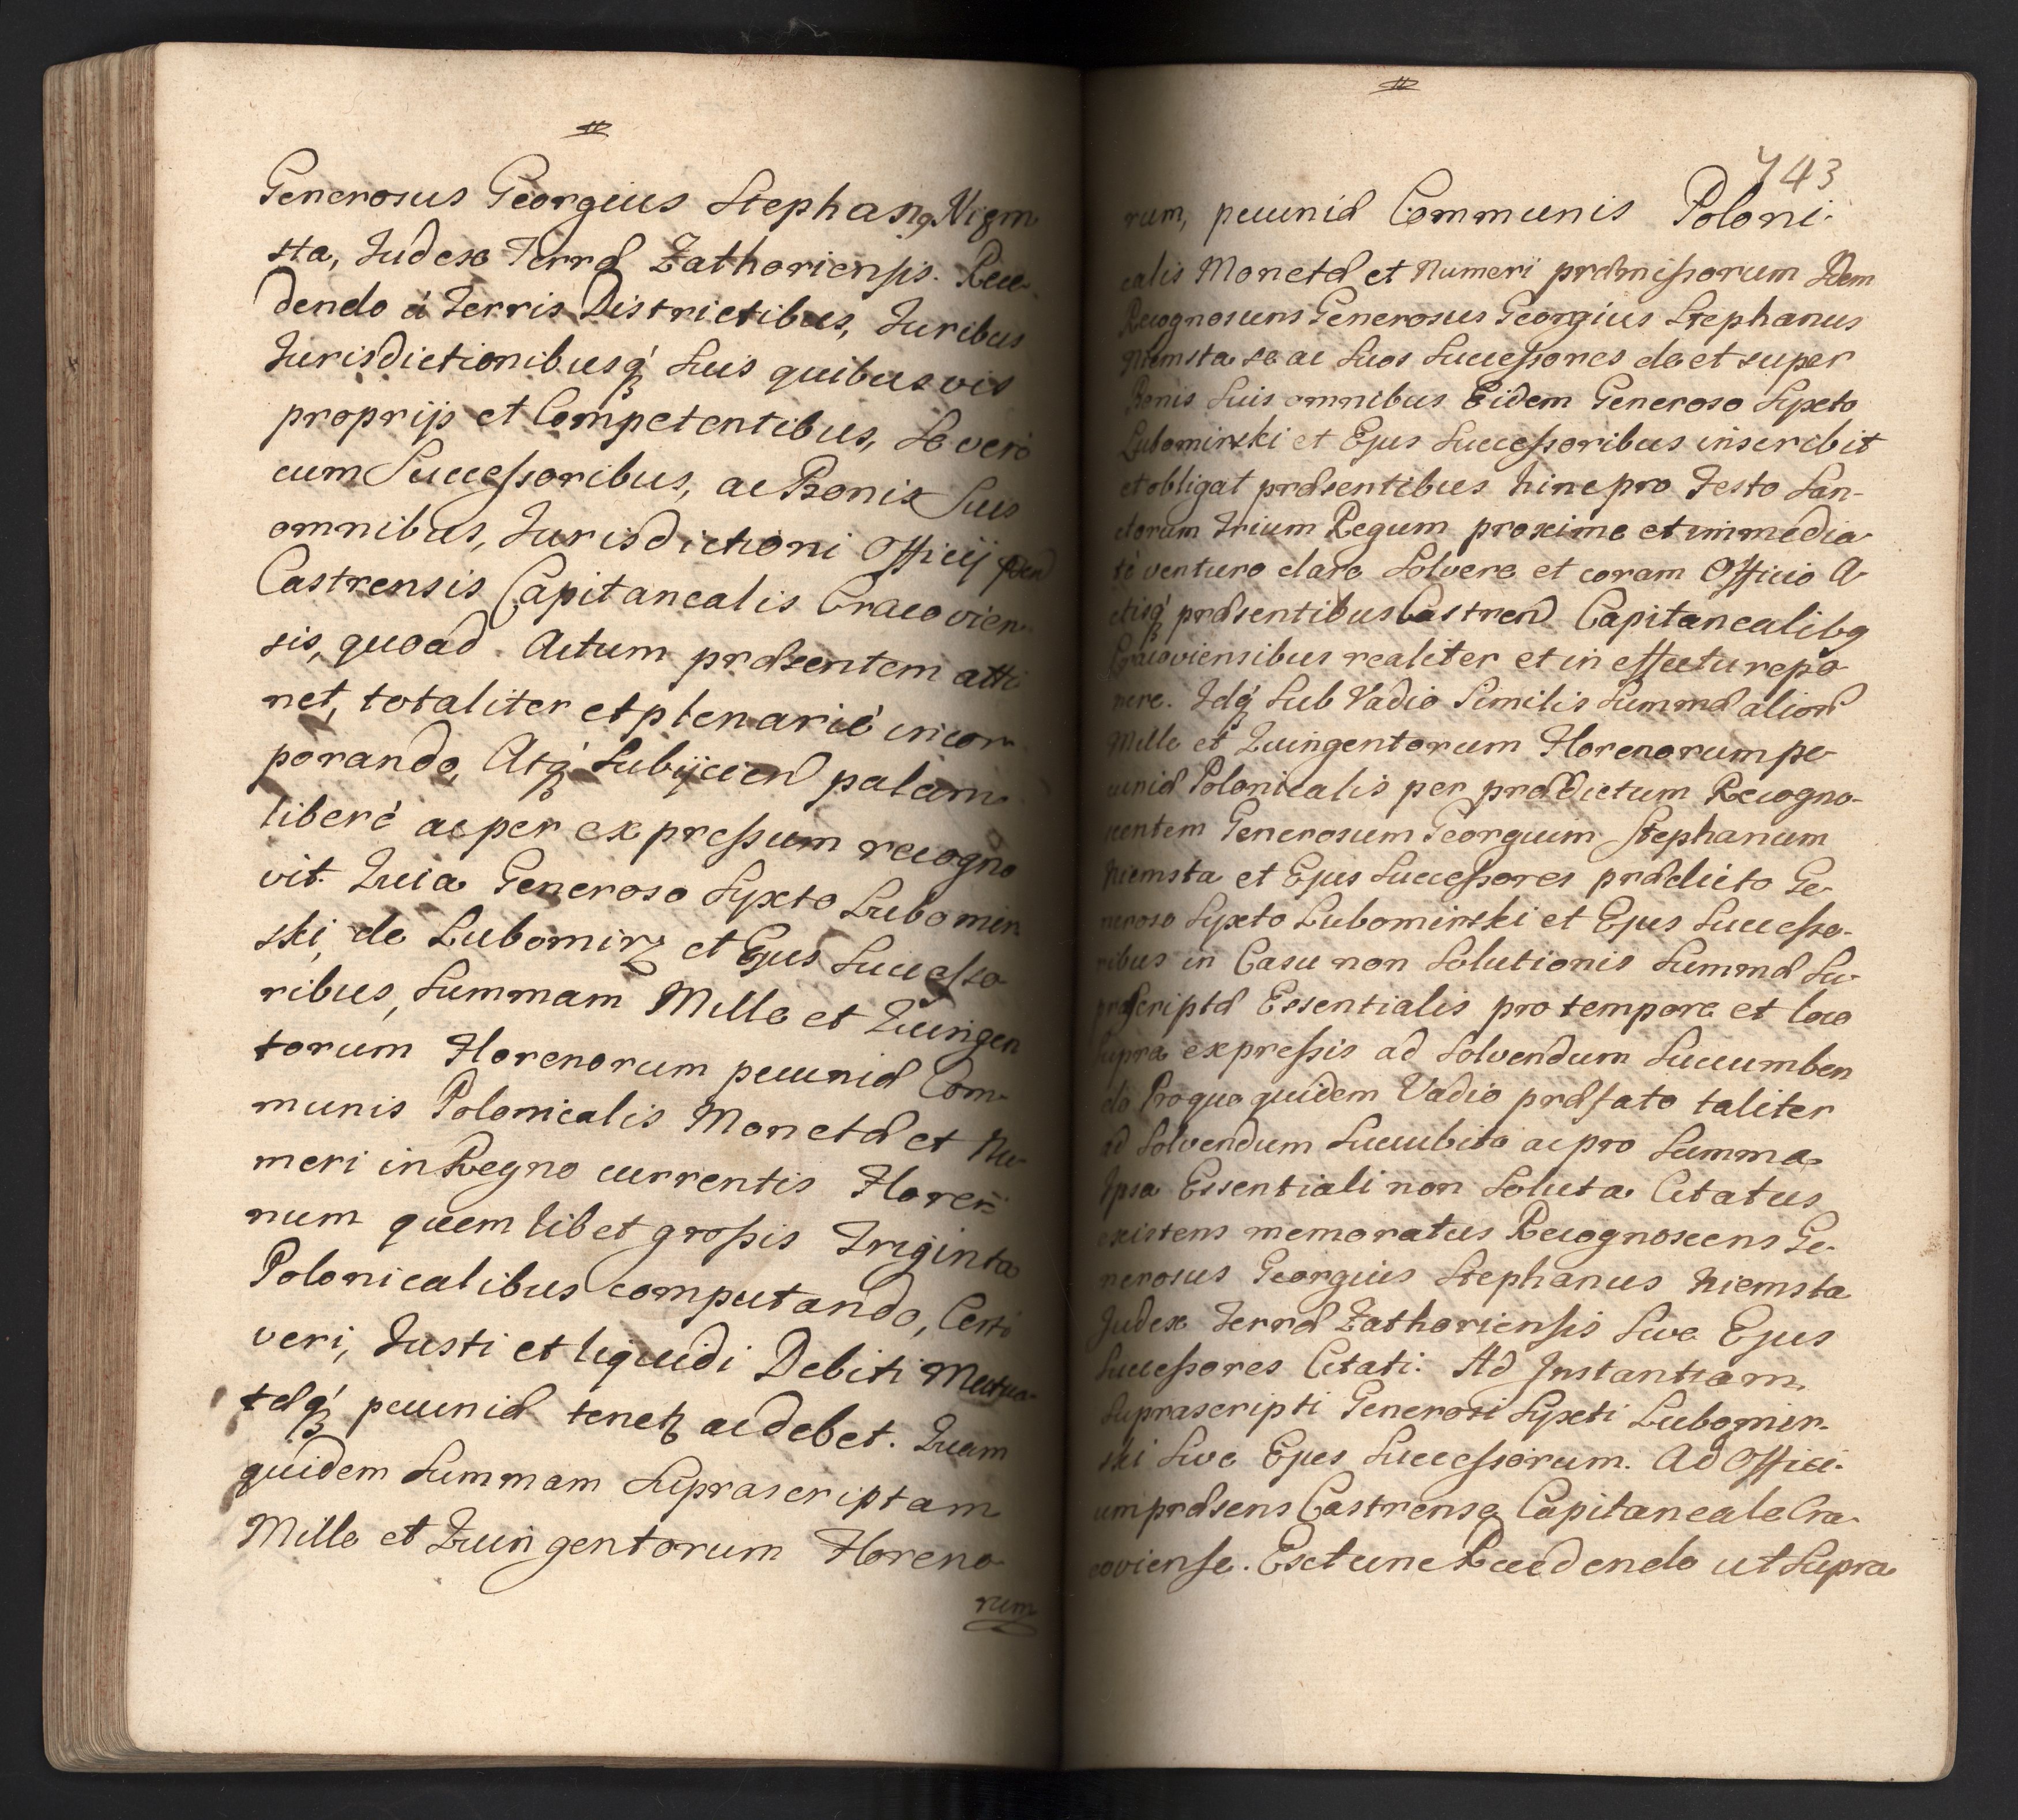 Generosus Georgius Stephanq Niem
sta, Judex Terræ Zathoriensis. Rece
dendo à Terris Districtibus, Juribus
Jurisdictionibusq́ Suis quibusvis
proprijs et Competentibus, Se verò
cum Successoribus, ac Bonis Suis
omnibus, Jurisdictioni Officij præn
Castrensis Capitanealis Cracovien
sis, quoad Actum præsentem atti
net, totaliter et plenariè incor
porando, Atq́ Subijcien palam
liberè ac per expressum recogno
vit. Quia Generoso Syxto Lubomir
ski, de Lubomirz et Ejus Successo
ribus, Summam Mille et Quingen
torum Florenorum pecuniæ Com
munis Polonicalis Monetæ et Nu
meri in Regno currentis Floren̄
num quemlibet grossis Triginta
Polonicalibus computando, Certi
veri, Justi et liquidi Debiti Mutua
tæq́ pecuniæ tenetꝫ ac debet. Quam
quidem Summam Suprascriptam
Mille et Quingentorum Floreno
rum
743
rum, pecuniæ Communis Poloni-
calis Monetæ et Numeri præmissorum Idem
Recognoscens Generosus Georgius Stephanus
Niemsta se ac Suos Successores de et super
Bonis Suis omnibus Eidem Generoso Syxto
Lubomirski et Ejus Successoribus inscribit
et obligat præsentibus hinc pro Festo San-
ctorum Trium Regum proxime et immedia
tè venturo dare Solvere et coram Officio A-
ctisq́ præsentibus Castren Capitanealibq
Cracoviensibus realiter et in effectu repo
nere. Idq́ Sub Vadio Similis Summæ alior
Mille et Quingentorum Florenorum pe-
cuniæ Polonicalis per prædictum Recogno-
scentem Generosum Georgium Stephanum
Niemsta et Ejus Successores prædicto Ge-
neroso Syxto Lubomirski et Ejus Successo-
ribus in Casu non Solutionis Summæ Su-
præscriptæ Essentialis pro tempore et loco
supra expressis ad Solvendum Succumben
do Pro quo quidem Vadio præfato taliter
ad Solvendum Succubito ac pro Summa
Ipsa Essentiali non Soluta Citatus
existens memoratus Recognoscens Ge-
nerosus Georgius Stephanus Niemsta
Judex Terræ Zathoriensis Sive Ejus
Successores Citati: Ad Instantiam
Suprascripti Generosi Syxti Lubomir-
ski Sive Ejus Successorum. Ad Offici-
um præsens Castrense Capitaneale Cra-
coviense. Ex tunc Recedendo ut Supra